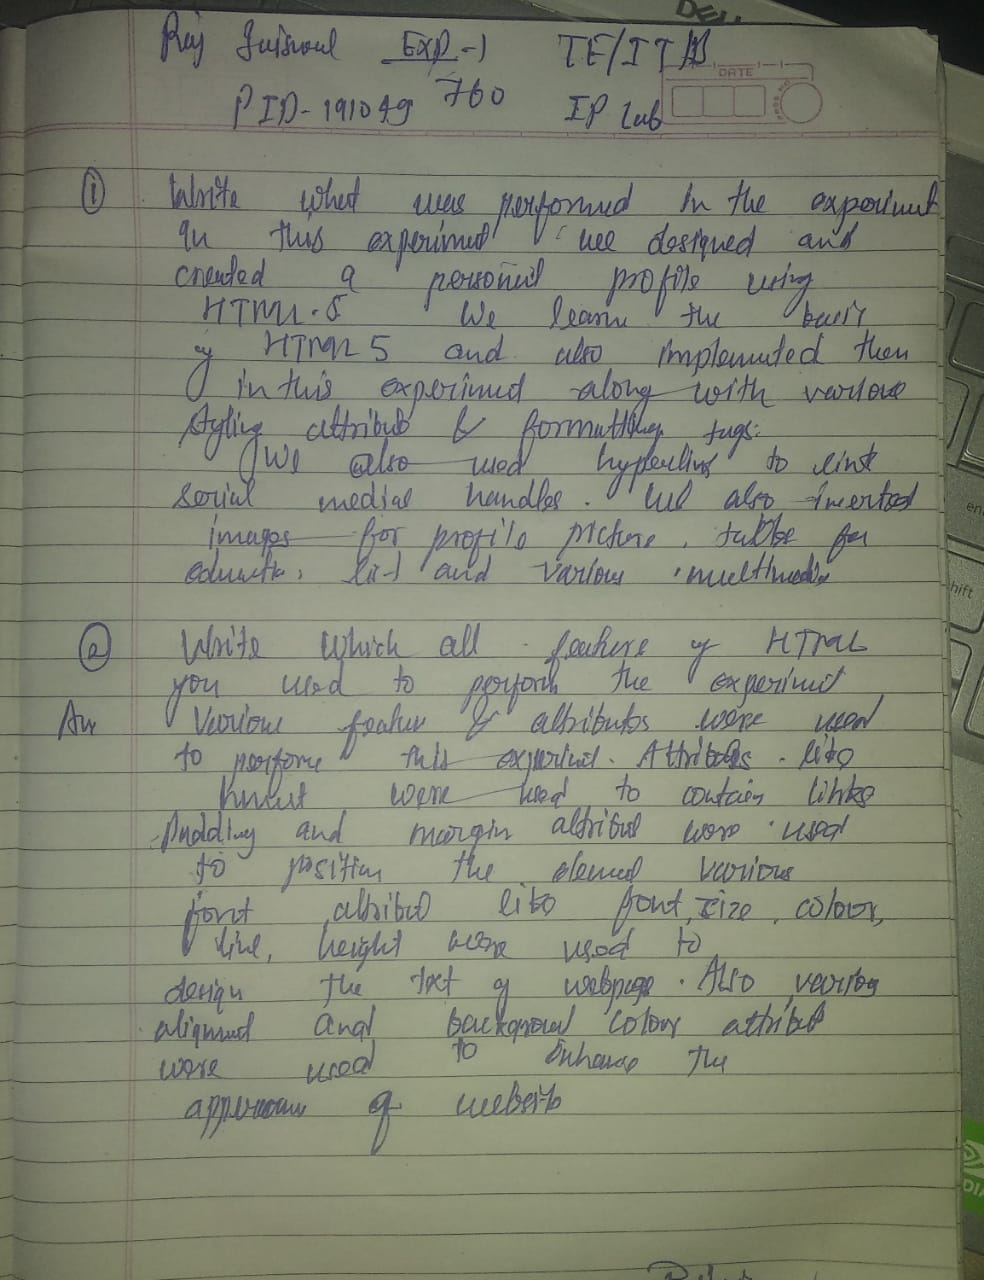 DELL
Raj Exp-1 TE/ITB
DATE
PID-191049 760 IP Lab
① Write what was performed In the experiment
In this experiment we designed and
created a personal profile using
HTML-5 We learn the basic
of HTML 5 and also implemented them
in this experiment along with various
styling attribut & formatting tags.
We also used hyperlink to link
social medial handles. We also inserted
images for profile picture, table for
educatn, list and various multimedia
② Write Which all feature of HTML
you used to perform the experiment
Ans Various featur & attributes were used
to perform this experiment. Attributes like
were used to contain links
Padding and margin attribut were used
to position the element various
font attribut like font, size, colour,
line, height were used to
design the text of webpage. Also various
alignment and background colour attribut
were used to Enhance the
apperance of website
shift